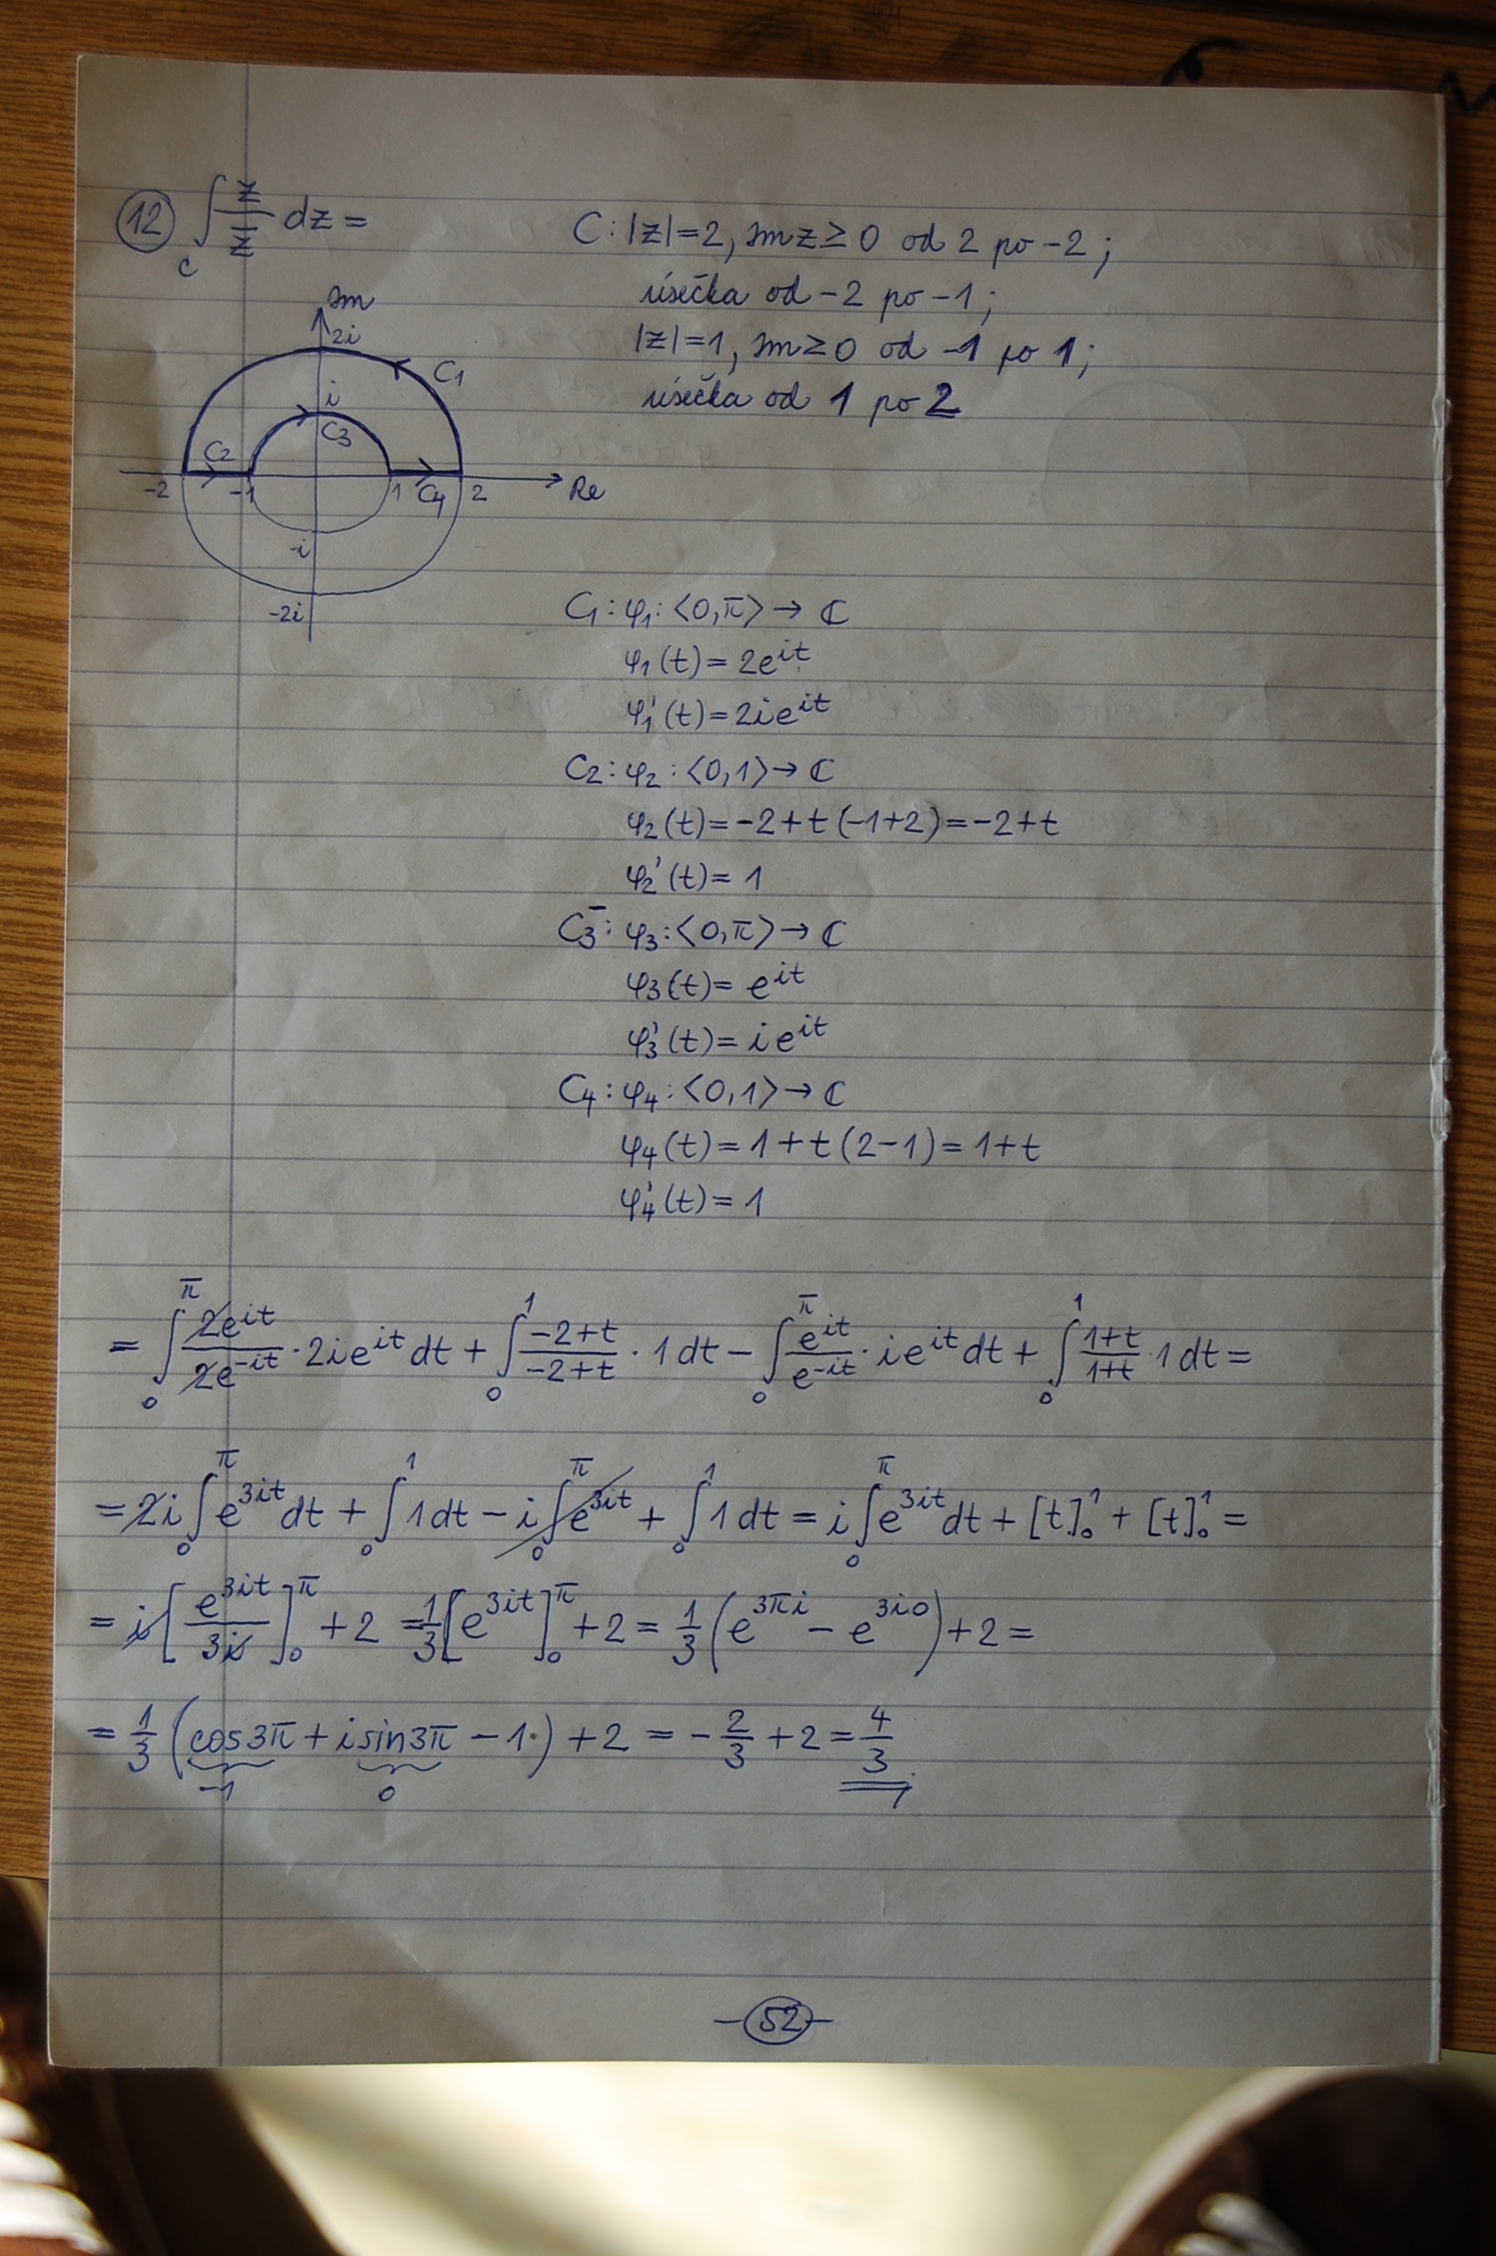 (12) ∫_C z/z̄ dz =
C: |z|=2, Im z ≥ 0 od 2 po -2;
úsečka od -2 po -1;
|z|=1, Im ≥ 0 od -1 po 1;
úsečka od 1 po 2
Im
2i
C1
i
C3
C2
-2 -1 1 C4 2 Re
-i
-2i
C1: φ1: <0,π> → ℂ
φ1(t) = 2e^{it}
φ1'(t) = 2ie^{it}
C2: φ2: <0,1> → ℂ
φ2(t) = -2+t(-1+2) = -2+t
φ2'(t) = 1
C3⁻: φ3: <0,π> → ℂ
φ3(t) = e^{it}
φ3'(t) = ie^{it}
C4: φ4: <0,1> → ℂ
φ4(t) = 1+t(2-1) = 1+t
φ4'(t) = 1
= ∫_0^π 2e^{it}/2e^{-it} · 2ie^{it} dt + ∫_0^1 (-2+t)/(-2+t) · 1 dt - ∫_0^π e^{it}/e^{-it} · ie^{it} dt + ∫_0^1 (1+t)/(1+t) · 1 dt =
= 2i ∫_0^π e^{3it} dt + ∫_0^1 1 dt - i ∫_0^π e^{3it} + ∫_0^1 1 dt = i ∫_0^π e^{3it} dt + [t]_0^1 + [t]_0^1 =
= i [e^{3it}/3i]_0^π + 2 = 1/3 [e^{3it}]_0^π + 2 = 1/3 (e^{3πi} - e^{3i0}) + 2 =
= 1/3 (cos3π + i sin3π - 1) + 2 = -2/3 + 2 = 4/3
-1 0
-52-